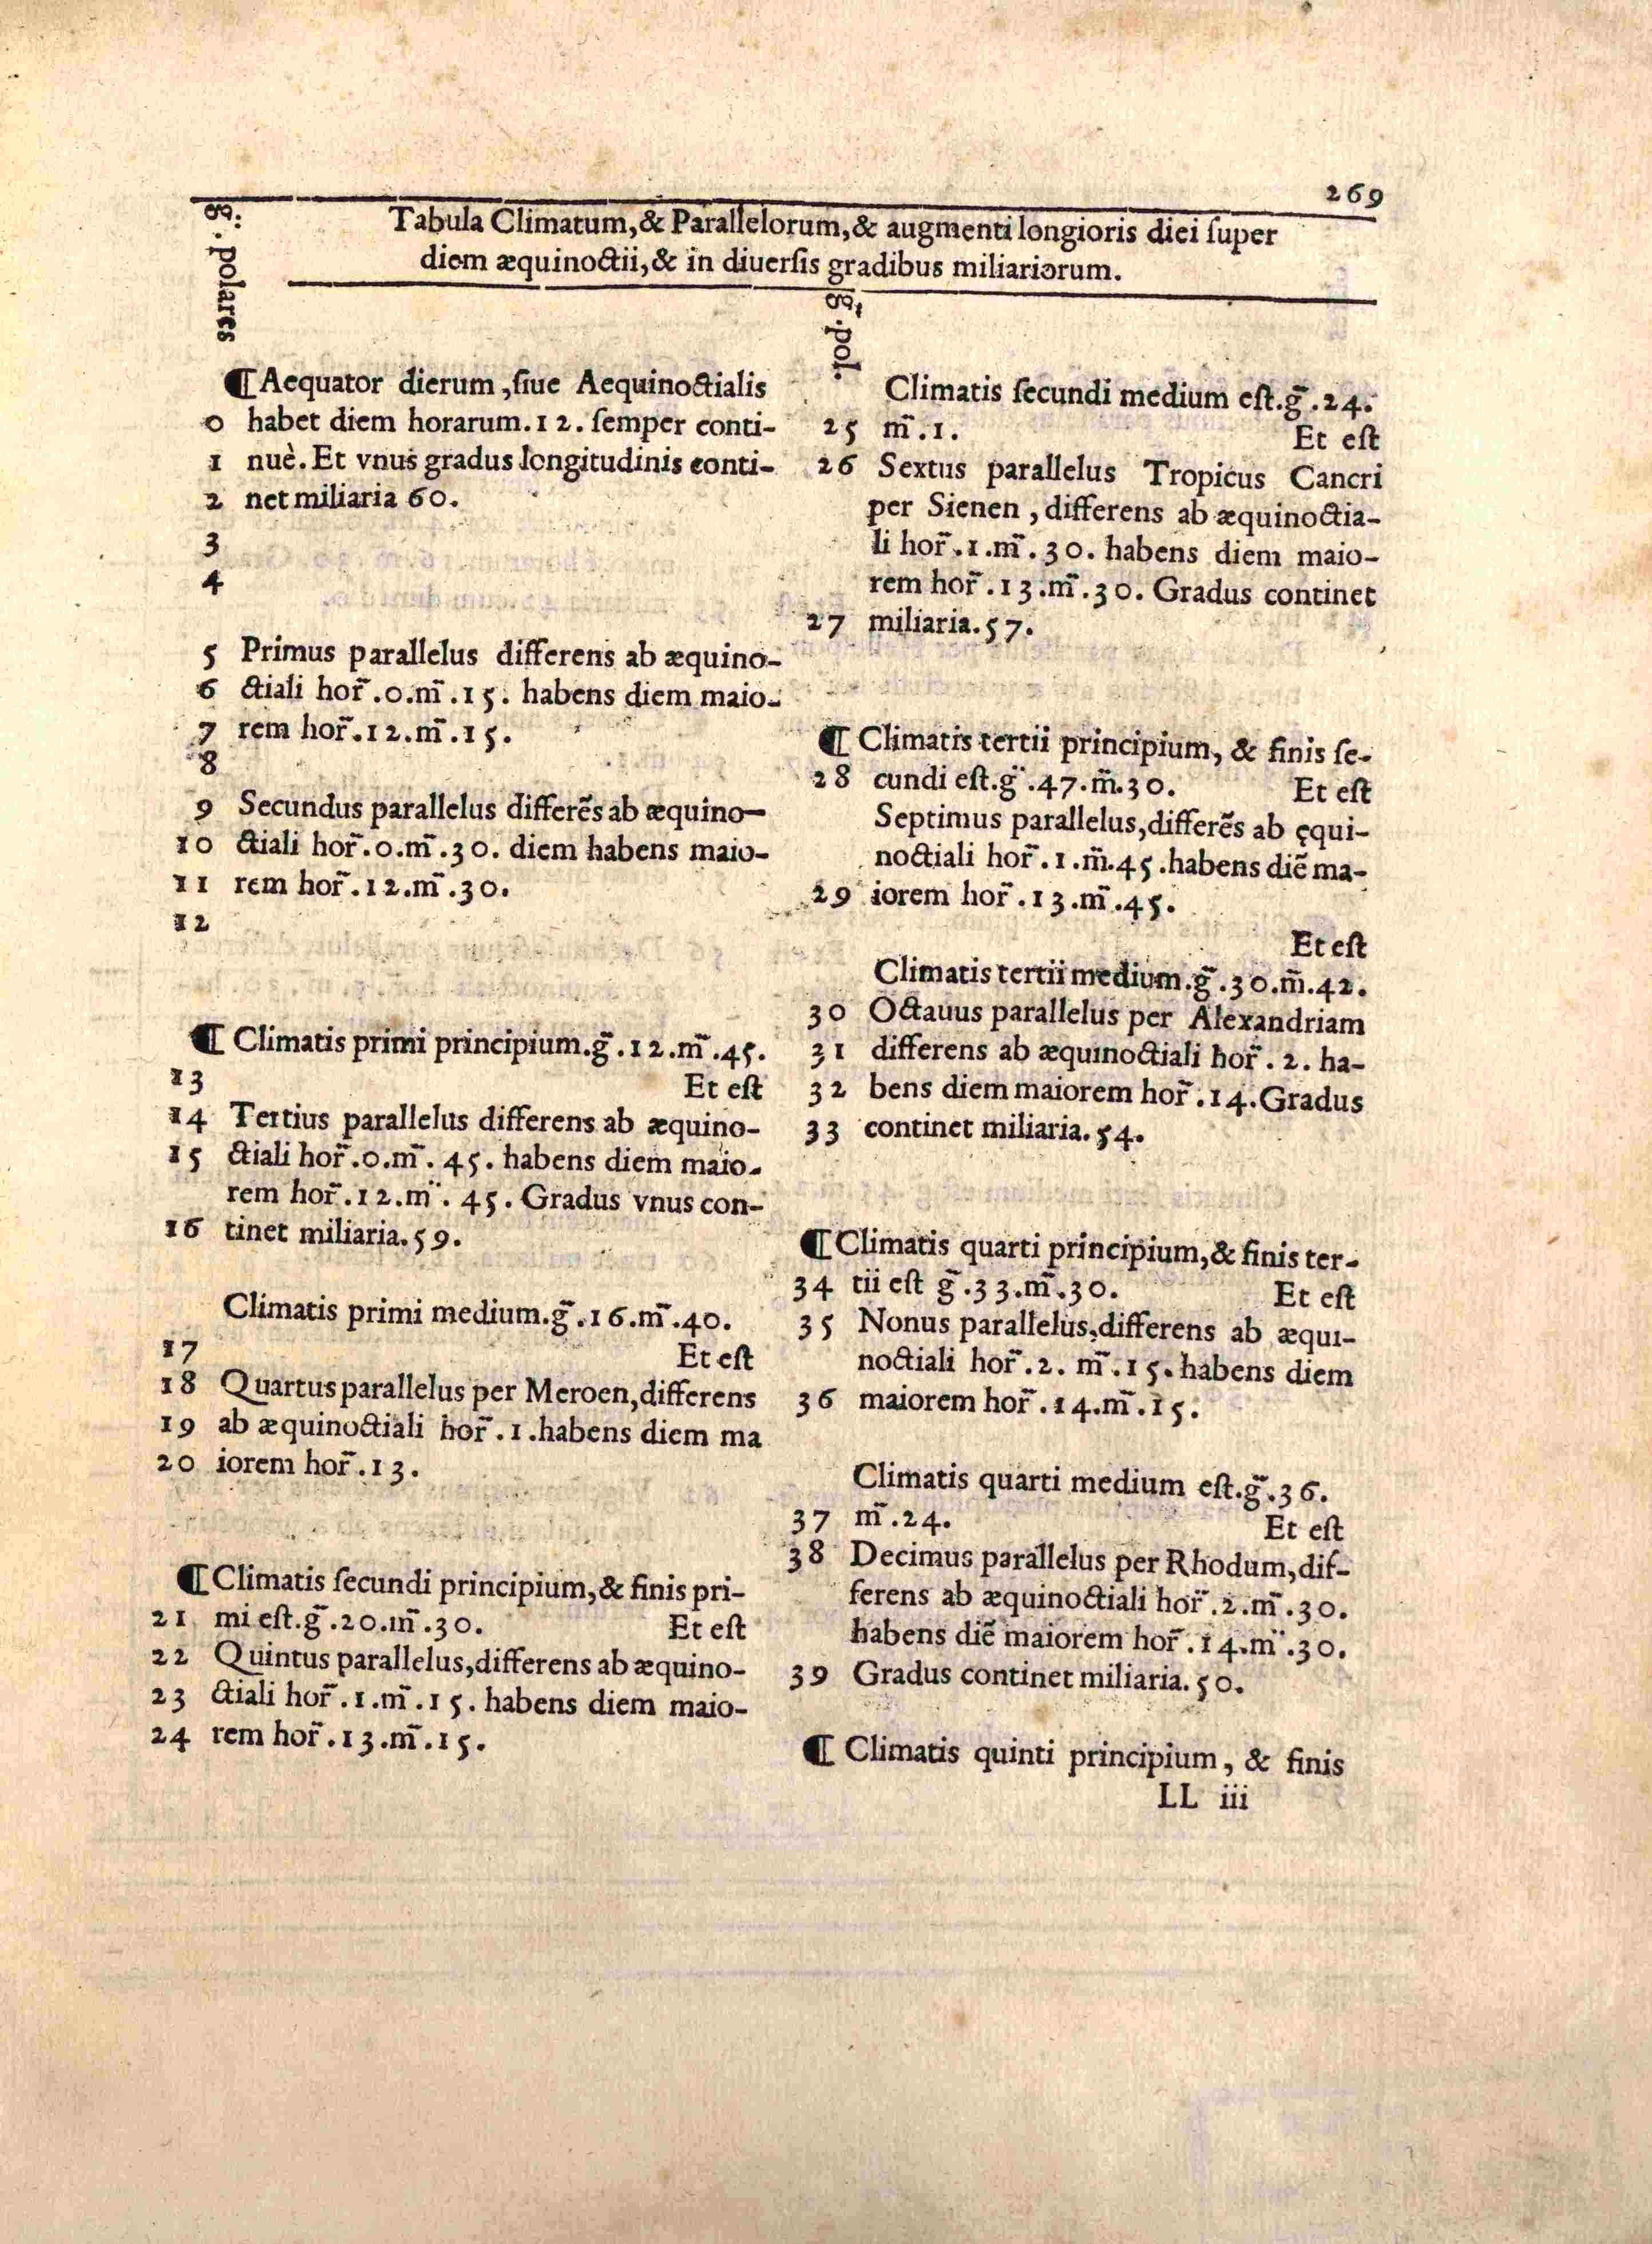 269
Tabula Climatum,& Parallelorum,& augmenti longioris diei ſuper
diem æquinoctii,& in diuerſis gradibus miliariorum.
g̃. polares
¶Aequator dierum ,ſiue Aequinoctialis
0 habet diem horarum.12. ſemper conti-
1 nuè. Et vnus gradus longitudinis conti-
2 net miliaria 60.
3
4
5 Primus parallelus differens ab æquino-
6 ctiali hor̃.0.m̃.15. habens diem maio-
7 rem hor̃.12.m̃.15.
8
9 Secundus parallelus differẽs ab æquino-
10 ctiali hor̃.0.m̃.30. diem habens maio-
11 rem hor̃.12.m̃.30.
12
¶ Climatis primi principium.g̃.12.m̃.45.
13 Et eſt
14 Tertius parallelus differens ab æquino-
15 ctiali hor̃.0.m̃. 45. habens diem maio-
rem hor̃.12.m̃. 45. Gradus vnus con-
16 tinet miliaria.59.
Climatis primi medium.g̃.16.m̃.40.
17 Et eſt
18 Quartus parallelus per Meroen,differens
19 ab æquinoctiali hor̃.1.habens diem ma
20 iorem hor̃.13.
¶Climatis ſecundi principium,& finis pri-
21 mi eſt.g̃.20.m̃.30. Et eſt
22 Quintus parallelus,differens ab æquino-
23 ctiali hor̃.1.m̃.15. habens diem maio-
24 rem hor̃.13.m̃.15.
g̃.pol.
Climatis ſecundi medium eſt.g̃.24.
25 m̃.1. Et eſt
26 Sextus parallelus Tropicus Cancri
per Sienen ,differens ab æquinoctia-
li hor̃.1.m̃.30. habens diem maio-
rem hor̃.13.m̃.30. Gradus continet
27 miliaria.57.
¶ Climatis tertii principium, & finis ſe-
28 cundi eſt.g̃.47.m̃.30. Et eſt
Septimus parallelus,differẽs ab ęqui-
noctiali hor̃.1.m̃.45.habens diẽ ma-
29 iorem hor̃.13.m̃.45.
Et eſt
Climatis tertii medium.g̃.30.m̃.42.
30 Octauus parallelus per Alexandriam
31 differens ab æquinoctiali hor̃.2. ha-
32 bens diem maiorem hor̃.14.Gradus
33 continet miliaria.54.
¶Climatis quarti principium,& finis ter-
34 tii eſt g̃.33.m̃.30. Et eſt
35 Nonus parallelus,differens ab æqui-
noctiali hor̃.2. m̃.15.habens diem
36 maiorem hor̃.14.m̃.15.
Climatis quarti medium eſt.g̃.36.
37 m̃.24. Et eſt
38 Decimus parallelus per Rhodum,dif-
ferens ab æquinoctiali hor̃.2.m̃.30.
habens diẽ maiorem hor̃.14.m̃.30.
39 Gradus continet miliaria.50.
¶ Climatis quinti principium, & finis
LL iii